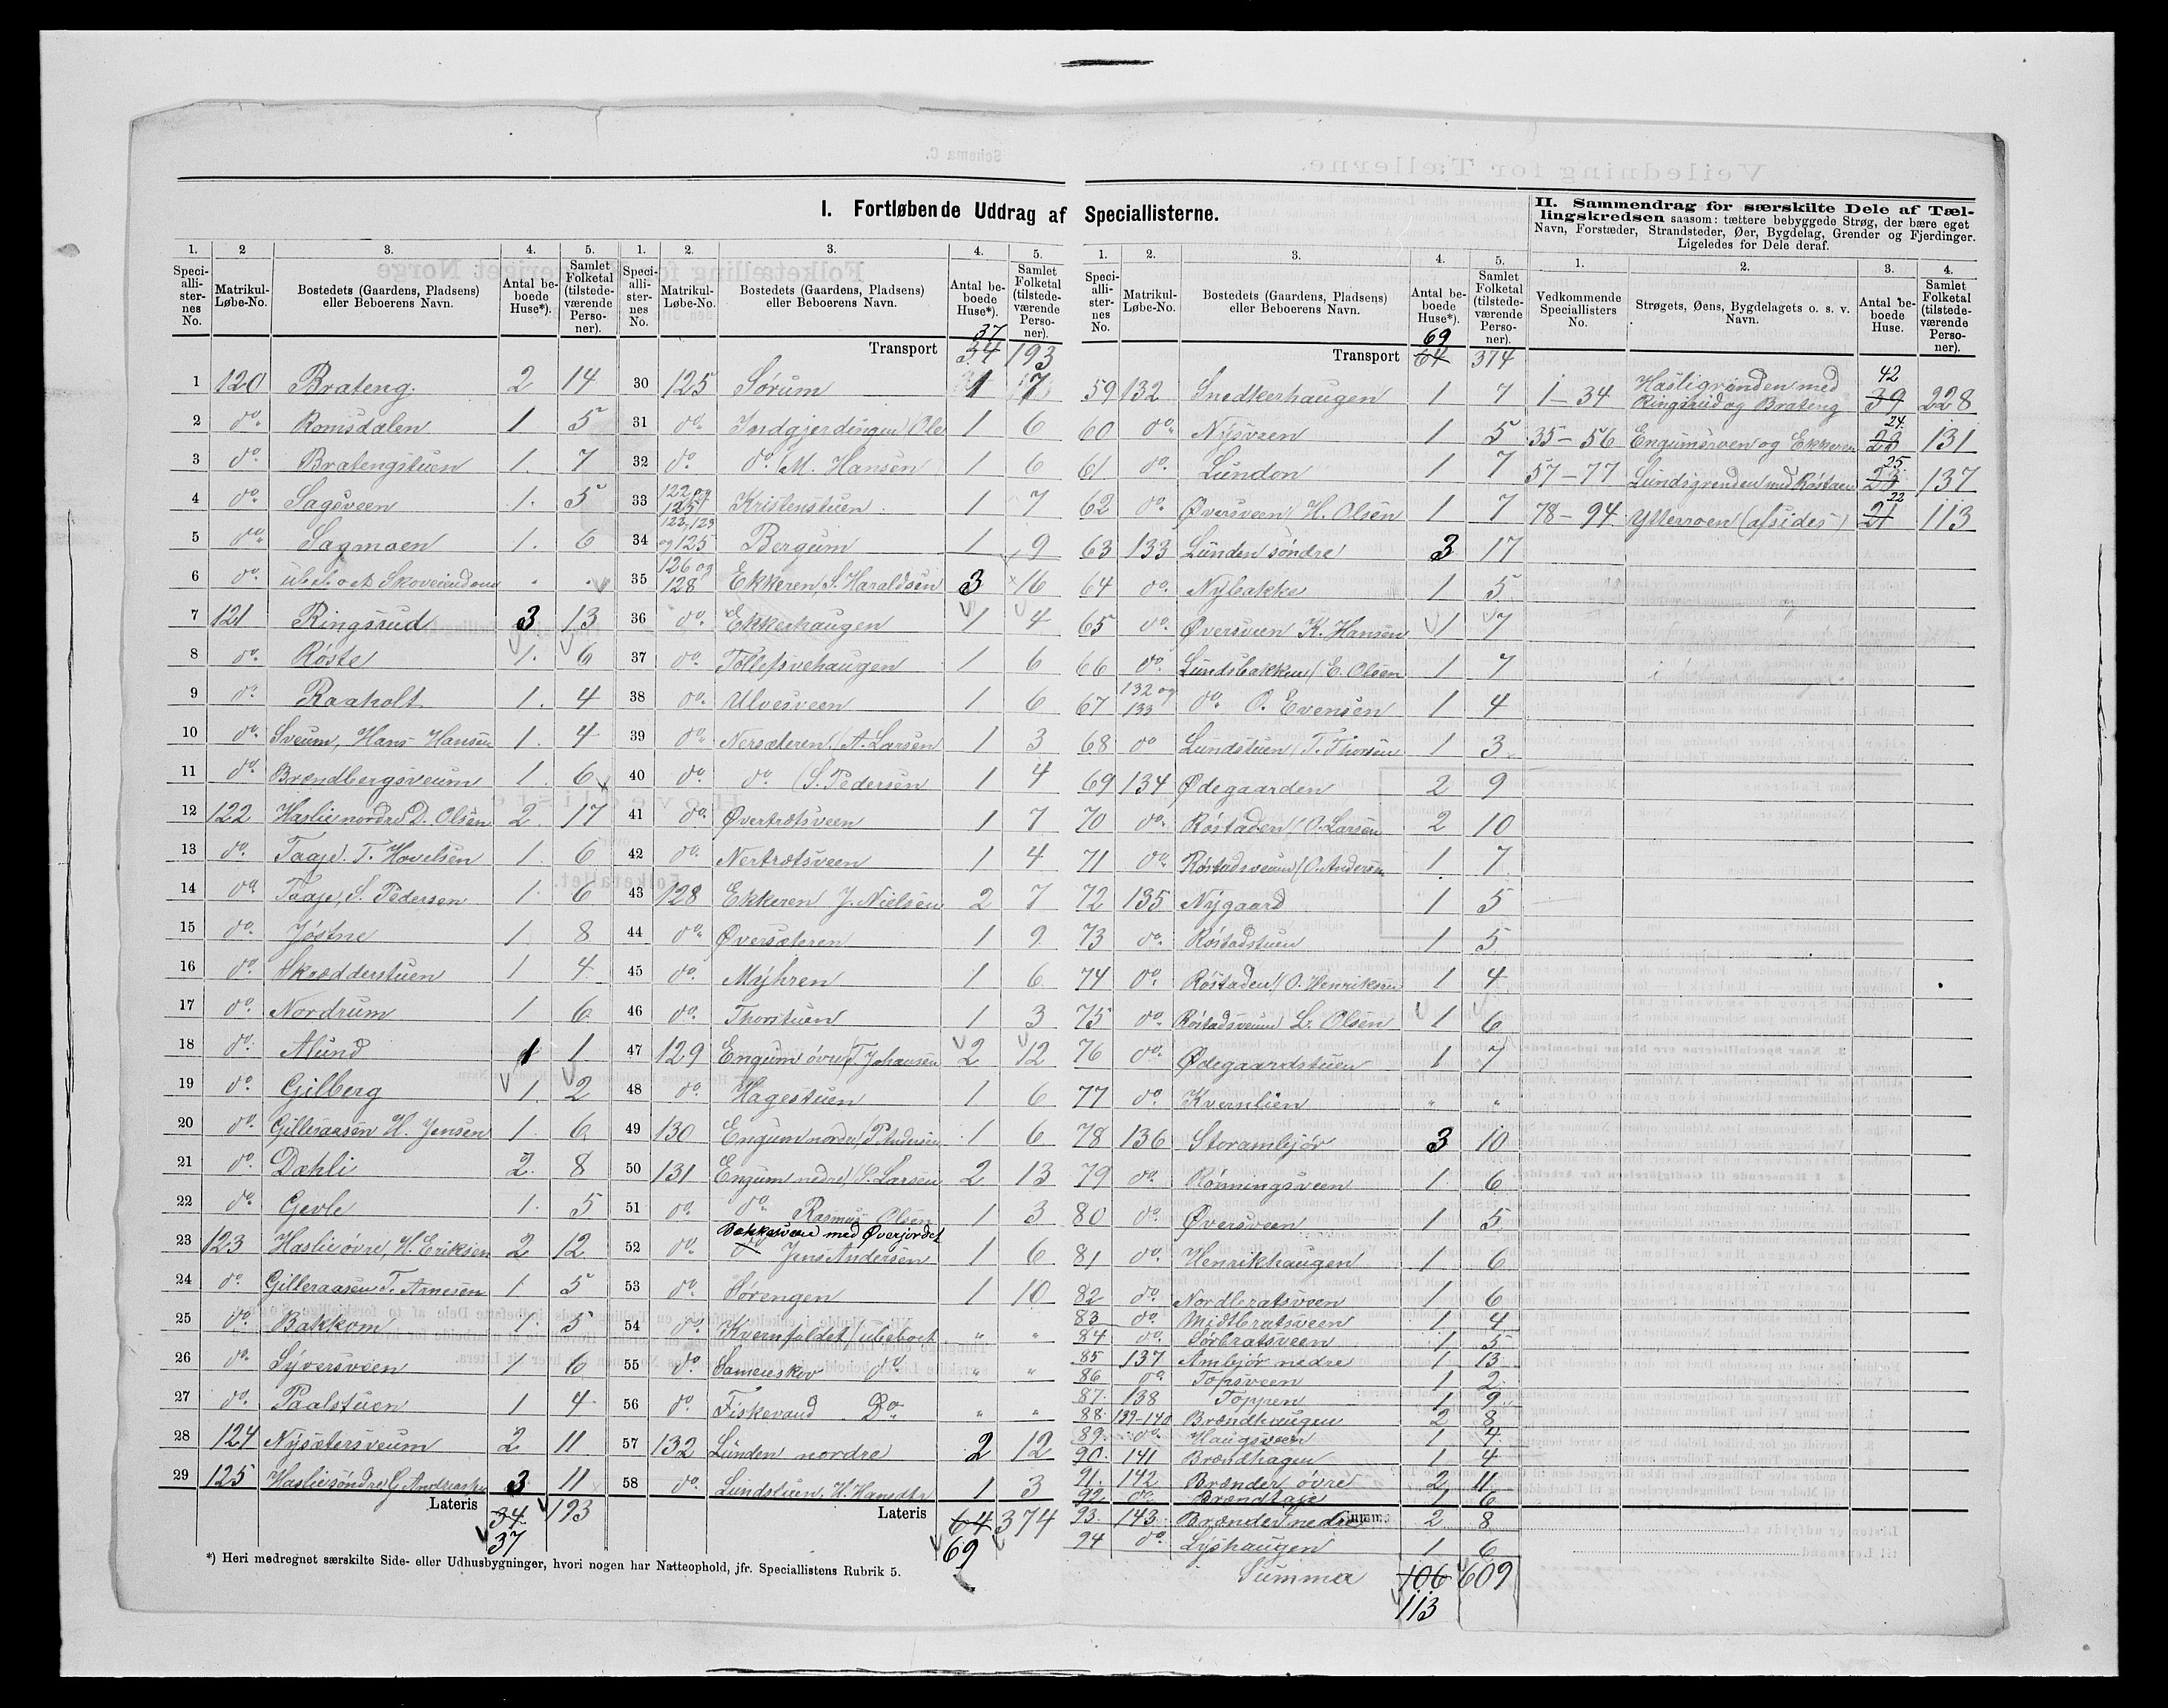 I. Fortløbende Uddrag af Speciallisterne.
1. 2 3. 4. 5.
Speciallisternes No. Matrikul-Løbe-No. Bostedets (Gaardens, Pladsens) eller Beboerens Navn. Antal beboede Huse*). Samlet Folketal (tilstedeværende Personer).
1 120 Brateng 2 14
2 do. Romsdalen 1 5
3 do. Bratengstuen 1. 7
4 do Sagsveen 1. 5
5 do Sagmoen 1. 6
6 do. ubeboet Skoveiendom . .
7 121 Ringsrud 3 13
8 do. Røste 1. 6
9 do Raaholt 1. 4
10 do. Sveum, Hans Hansen 1. 4
11 do. Brændbergsveum 1. 6
12 122 Haslie nordre D. Olsen 2 17
13 do. Taaje. T. Hovelsen 1. 6
14 do Taaje, S. Pedersen 1. 6
15 do. Jøstne 1. 8
16 do. Skrædderstuen 1 4
17 do. Nordrum 1 6
18 do. Alund 1 1
19 do. Gilberg 1. 2
20 do. Gilleraasen H. Jensen 1. 6
21 do. Dæhli 2. 8
22 do. Gevle 1. 5
23 123 Haslie øvre, H. Eriksen 2 12
24 do. Gilleraasen T. Arnesen 1 5
25 do. Bakkom 1. 5
26 do. Syversveen 1 6
27 do. Paalstuen 1 4
28 124 Nysætersveum 2 11
29 125 Haslie søndre G. 3 11
Lateris 34 193
37
*) Heri medregnet særskilte Side- eller Udhusbygninger, hvori nogen har Natteophold, jfr. Speciallistens Rubrik 5.
1. 2. 3. 4. 5.
Speciallisternes No. Matrikul-Løbe-No. Bostedets (Gaardens, Pladsens) eller Beboerens Navn. Antal beboede Huse*). Samlet Folketal (tilstedeværende Personer).
37
Transport 34 193
30 125 Sørum 1 7
31 do. Indgjerdingen (Ole 1 6
32 do. do. M. Hansen 1 6
33 122 og 125 Kristenstuen 1 7
34 122, 123 og 125 Bergum 1 9
35 126 og 128 Ekkeren, S. Haraldsen 3 16
36 do. Ekkerhaugen 1 4
37 do. Tollefsvehaugen 1 6
38 do. Ulvesveen 1 6
39 do. Nersæteren, (A. Larsen 1 3
40 do. do. (S. Pedersen 1 4
41 do. Øvertrøtsveen 1 7
42 do. Nertrøtsveen 1 4
43 128 Ekkeren J. Nielsen 2 7
44 do. Øversæteren 1 9
45 do. Myhren 1 6
46 do. Thorstuen 1 3
47 129 Engum øvre, T. Johansen 2 12
48 do. Hagestuen 1. 6
49 130 Engum nordre, P. Andersen 1 6
50 131 Engum nedre, P. Larsen 2 13
51 do. do. Rasmus Olsen 1 3
Bakkesveen med Øverjordet
52 do. do Jens Andersen 1 6
53 do. Sørengen 1 10
54 do. Kvernfaldet (ubeboet " "
55 do. Sameieskov do. " "
56 do. Fiskevand Do. " "
57 132 Lunden nordre 2 12
58 do. Lundstuen, H. Hansdtr 1 3
Lateris 64 374
69
1. 2. 3. 4. 5.
Speciallisternes No. Matrikul-Løbe-No. Bostedets (Gaardens, Pladsens) eller Beboerens Navn. Antal beboede Huse*). Samlet Folketal (tilstedeværende Personer).
69
Transport 64 374
59 132 Snedkerhaugen 1 7
60 do. Nysveen 1 5
61 do. Lundon 1 7
62 do. Øversveen H. Olsen 1 7
63 133 Lunden søndre 3 17
64 do. Nybakke 1 5
65 do. Øversveen K. Hansen 1 7
66 do. Lundsbakken (E. Olsen 1 7
67 132 og 133 do. O. Evensen 1 4
68 do Lundstuen (T. Thorsen 1 3
69 134 Ødegaarden 2 9
70 do. Røstaden (O. Larsen 2 10
71 do. Røstadsveum (O. Andersen 1. 7
72 135 Nygaard 1 5
73 do. Røstadstuen 1 5
74 do. Røstaden (O. Henriksen 1 4
75 do. Røstadsveum L. Olsen 1 6
76 do. Ødegaardstuen 1 7
77 do. Kvernlien " "
78 136 Storambjør 3 10
79 do. Rønningsveen 1. 6
80 do. Øversveen 1 5
81 do. Henrikhaugen 1 6
82 do. Nordbratsveen 1 6
83 do. Midtbratsveen 1 4
84 do. Sørbratsveen 1 5
85 137 Ambjør nedre 1 13
86 do Topsveen 1 2
87. 138 Toppen 1 9
88. 139-140 Brændhaugen 2 8
89. do. Haugsveen 1 4
90. 141 Brændhagen 1 4
91. 142 Brænder øvre 2 11
92 do. Brændtaje 1 6
93. 143 Brænder nedre Summa 2 8
94 do. Lyshaugen 1 6
Summa 106 609
113
II. Sammendrag for særskilte Dele af Tællingskredsen saasom: tættere bebyggede Strøg, der bære eget Navn, Forstæder, Strandsteder, Øer, Bygdelag, Grender og Fjerdinger. Ligeledes for Dele deraf.
1. 2. 3. 4.
Vedkommende Speciallisters No. Strøgets, Øens, Bygdelagets o. s. v. Navn. Antal beboede Huse. Samlet Folketal (tilstedeværende Personer).
1-34 Hasligrenden med Ringsrud og Brateng 42 39 228
35-56 Engumsroen og Ekkeren 24 131
57-77 Lundsgrenden med Røstaen 25 23 137
78-94 Ytterroen (afsides) 22 21 113